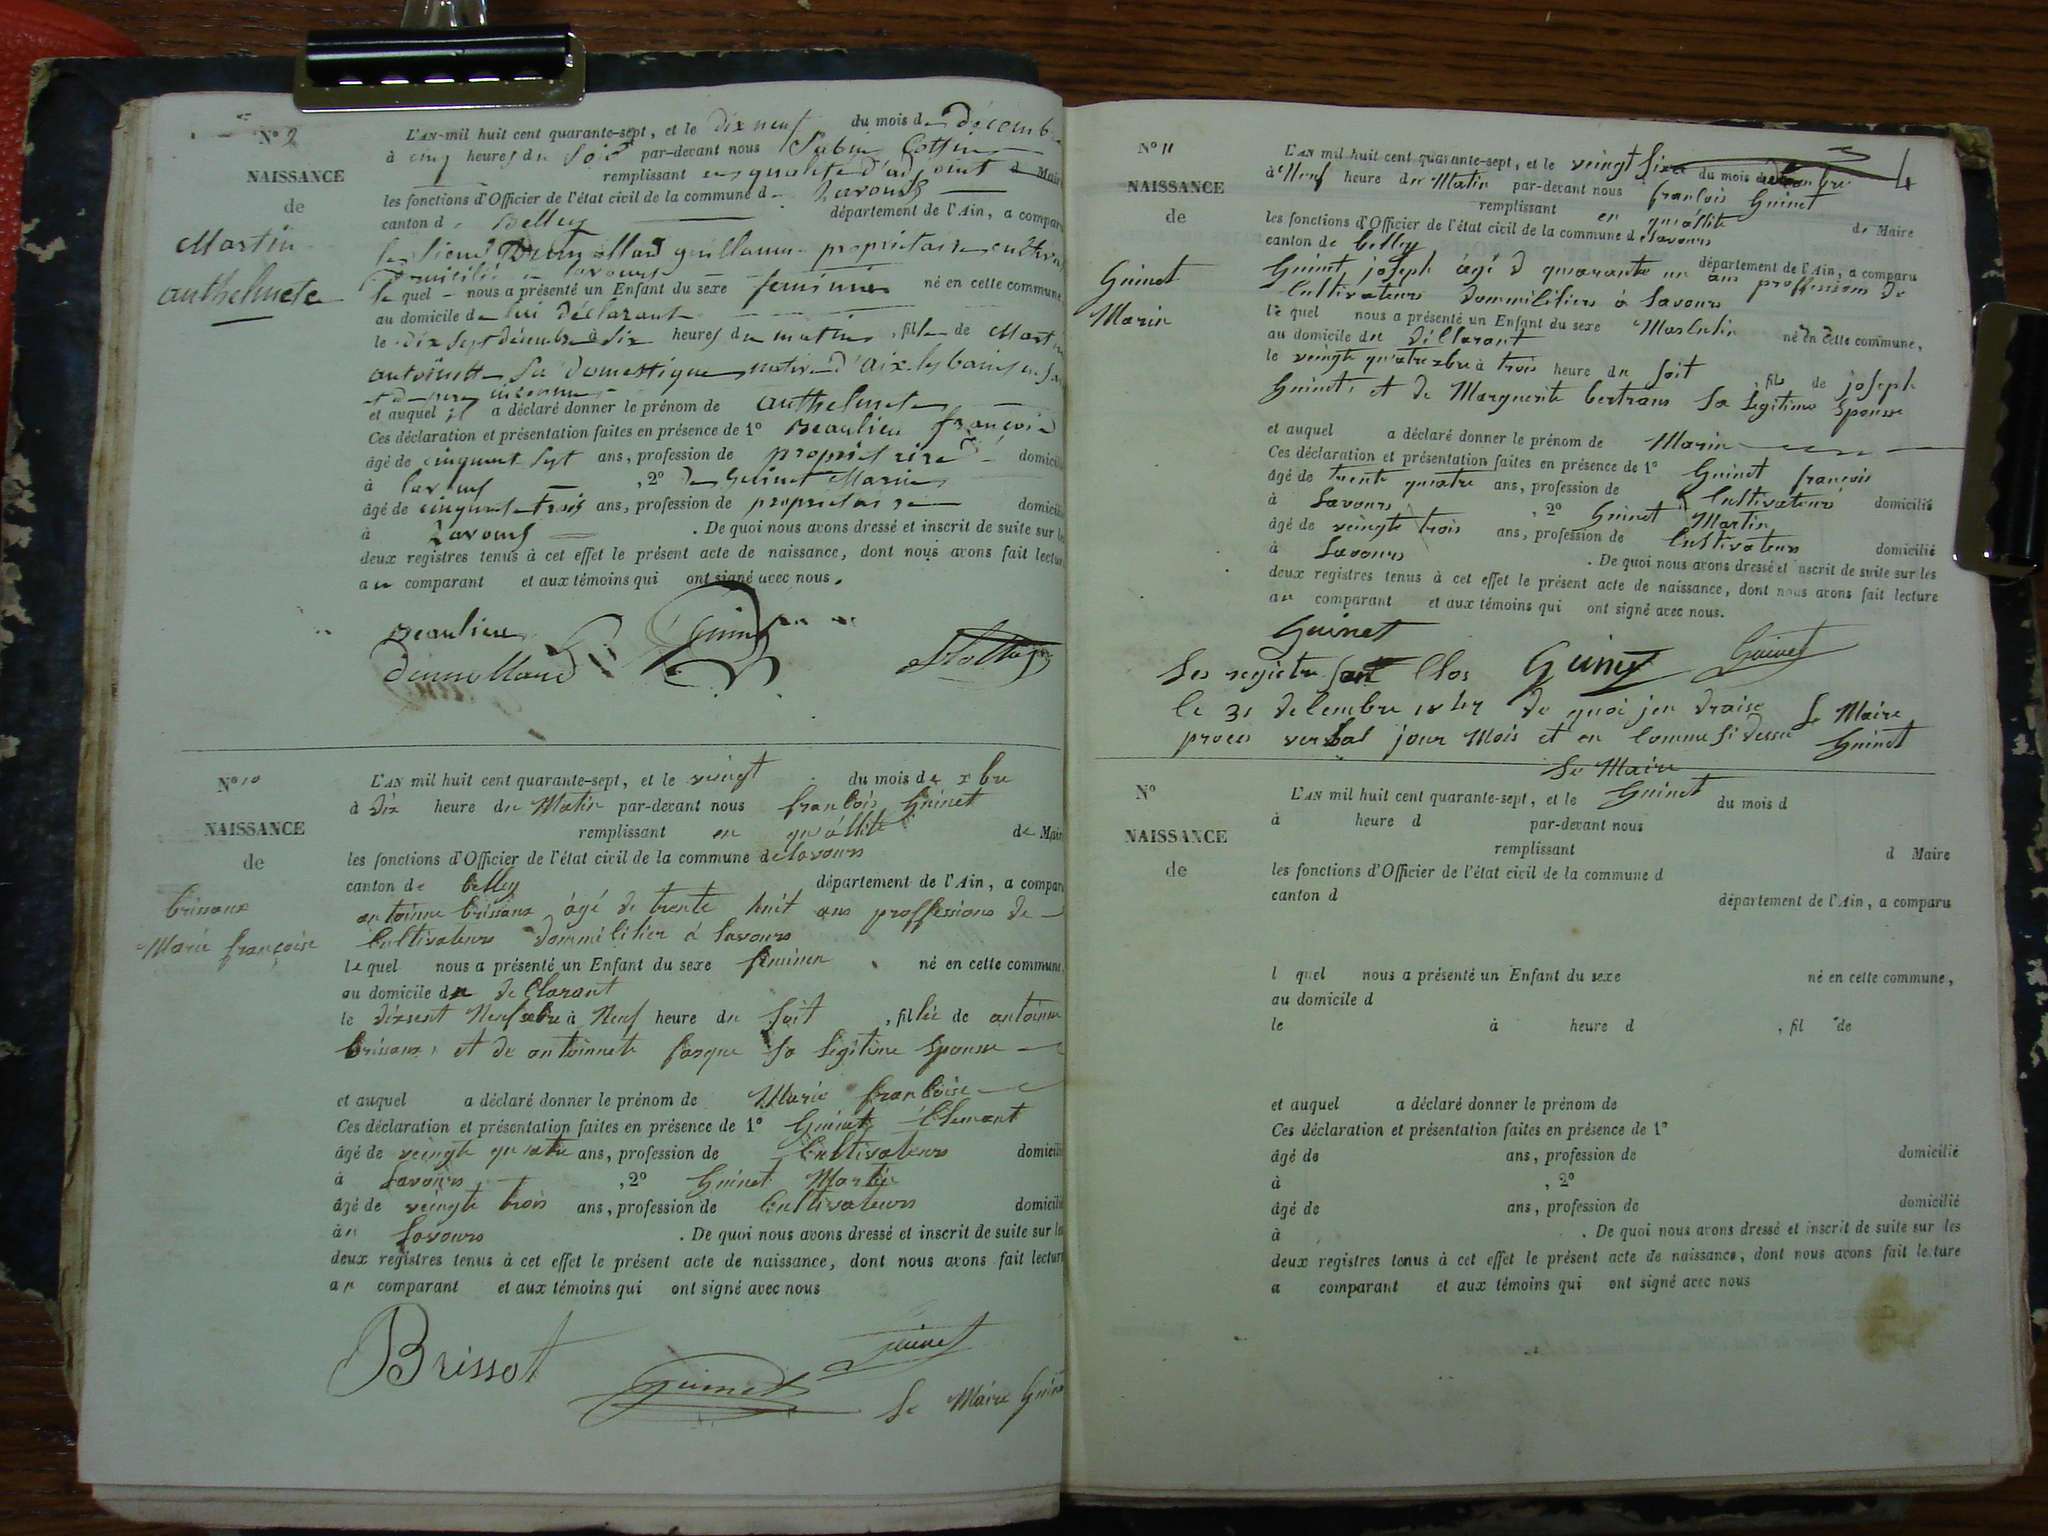 N° 9
NAISSANCE
de
Martin
anthelmete
L'AN mil huit cent quarante-sept, et le dix neuf du mois de décembre
à cinq heures du soir par-devant nous Sabin
remplissant en qualité d'adjoint d Maire
les fonctions d'Officier de l'état civil de la commune d Lavours
canton d Belley département de l'Ain, a comparu
le sieur guillaume propriétaire cultiva
domicilié à lavours
le quel nous a présenté un Enfant du sexe feminin né en cette commune,
au domicile de lui déclarant
le dix sept décembre à six heures du matin, fille de Martin
antoinette sa domestique native d'aix les bains en
et de père inconnu
et auquel il a déclaré donner le prénom de anthelmete
Ces déclaration et présentation faites en présence de 1° Beaulieu françois
âgé de cinquant sept ans, profession de propriétaire domicilié
à lavours, 2° de Guinet Marin
âgé de cinquante trois ans, profession de proprietaire domicilié
à Lavours. De quoi nous avons dressé et inscrit de suite sur les
deux registres tenus à cet effet le présent acte de naissance, dont nous avons fait lecture
au comparant et aux témoins qui ont signé avec nous.
Beaulieu Guinet
N° 10
NAISSANCE
de
brissaux
Marie françoise
L'AN mil huit cent quarante-sept, et le veingt du mois de xbre
à dix heure du Matin par-devant nous françois Guinet
remplissant en quallité de Maire
les fonctions d'Officier de l'état civil de la commune de lavours
canton de belley département de l'Ain, a comparu
antoinne brissaux âgé de trente huit ans proffessions de
Cultivateurs dommicilier à Lavours
le quel nous a présenté un Enfant du sexe feminen né en cette commune,
au domicile du de Clarant
le Neuf xbre à Neuf heure du soit, fillie de antoinne
brissaux, et de antoinnete sa legitime Epouse
et auquel a déclaré donner le prénom de Marie françoise
Ces déclaration et présentation faites en présence de 1° Guinet Clemant
âgé de veingte quatre ans, profession de Cultivateurs domicilié
à Lavours, 2° Guinet Martin
âgé de veingte trois ans, profession de Cultivateurs domicilié
à Lavours. De quoi nous avons dressé et inscrit de suite sur les
deux registres tenus à cet effet le présent acte de naissance, dont nous avons fait lecture
au comparant et aux témoins qui ont signé avec nous
Brissot Guinet Guinet
Le Maire Guinet
4
N° 11
NAISSANCE
de
Guinet
Marin
L'AN mil huit cent quarante-sept, et le veingt six du mois de
à Neuf heure du Matin par-devant nous françois Guinet
remplissant en quallité de Maire
les fonctions d'Officier de l'état civil de la commune de lavours
canton de belley département de l'Ain, a comparu
Guinet joseph âgé d quarante un ans proffessions de
Cultivateurs dommiciliers à Lavours
le quel nous a présenté un Enfant du sexe Masculin né en cette commune,
au domicile du déllarant
le veingte quatre xbre à trois heure du soit fils de joseph
Guinet, et de Marguerite bertrans sa legitime Epouse
et auquel a déclaré donner le prénom de Marin
Ces déclaration et présentation faites en présence de 1° Guinet françois
âgé de trente quatre ans, profession de Cultivateurs domicilié
à Lavours, 2° Guinet Martin
âgé de veingte trois ans, profession de Cultivateurs domicilié
à Lavours. De quoi nous avons dressé et inscrit de suite sur les
deux registres tenus à cet effet le présent acte de naissance, dont nous avons fait lecture
au comparant et aux témoins qui ont signé avec nous.
Guinet Guinet Guinet
Les registre sont Clos
le 31 décembre 1847 de quoi jen draise Le Maire
proces verbal jour Mois et an Comme si dessu Guinet
Le Maire
Guinet
N°
NAISSANCE
de
L'AN mil huit cent quarante-sept, et le du mois d
à heure d par-devant nous
remplissant d Maire
les fonctions d'Officier de l'état civil de la commune d
canton d département de l'Ain, a comparu
l quel nous a présenté un Enfant du sexe né en cette commune,
au domicile d
le à heure d, fil de
et auquel a déclaré donner le prénom de
Ces déclaration et présentation faites en présence de 1°
âgé de ans, profession de domicilié
à, 2°
âgé de ans, profession de domicilié
à. De quoi nous avons dressé et inscrit de suite sur les
deux registres tenus à cet effet le présent acte de naissance, dont nous avons fait lecture
a comparant et aux témoins qui ont signé avec nous